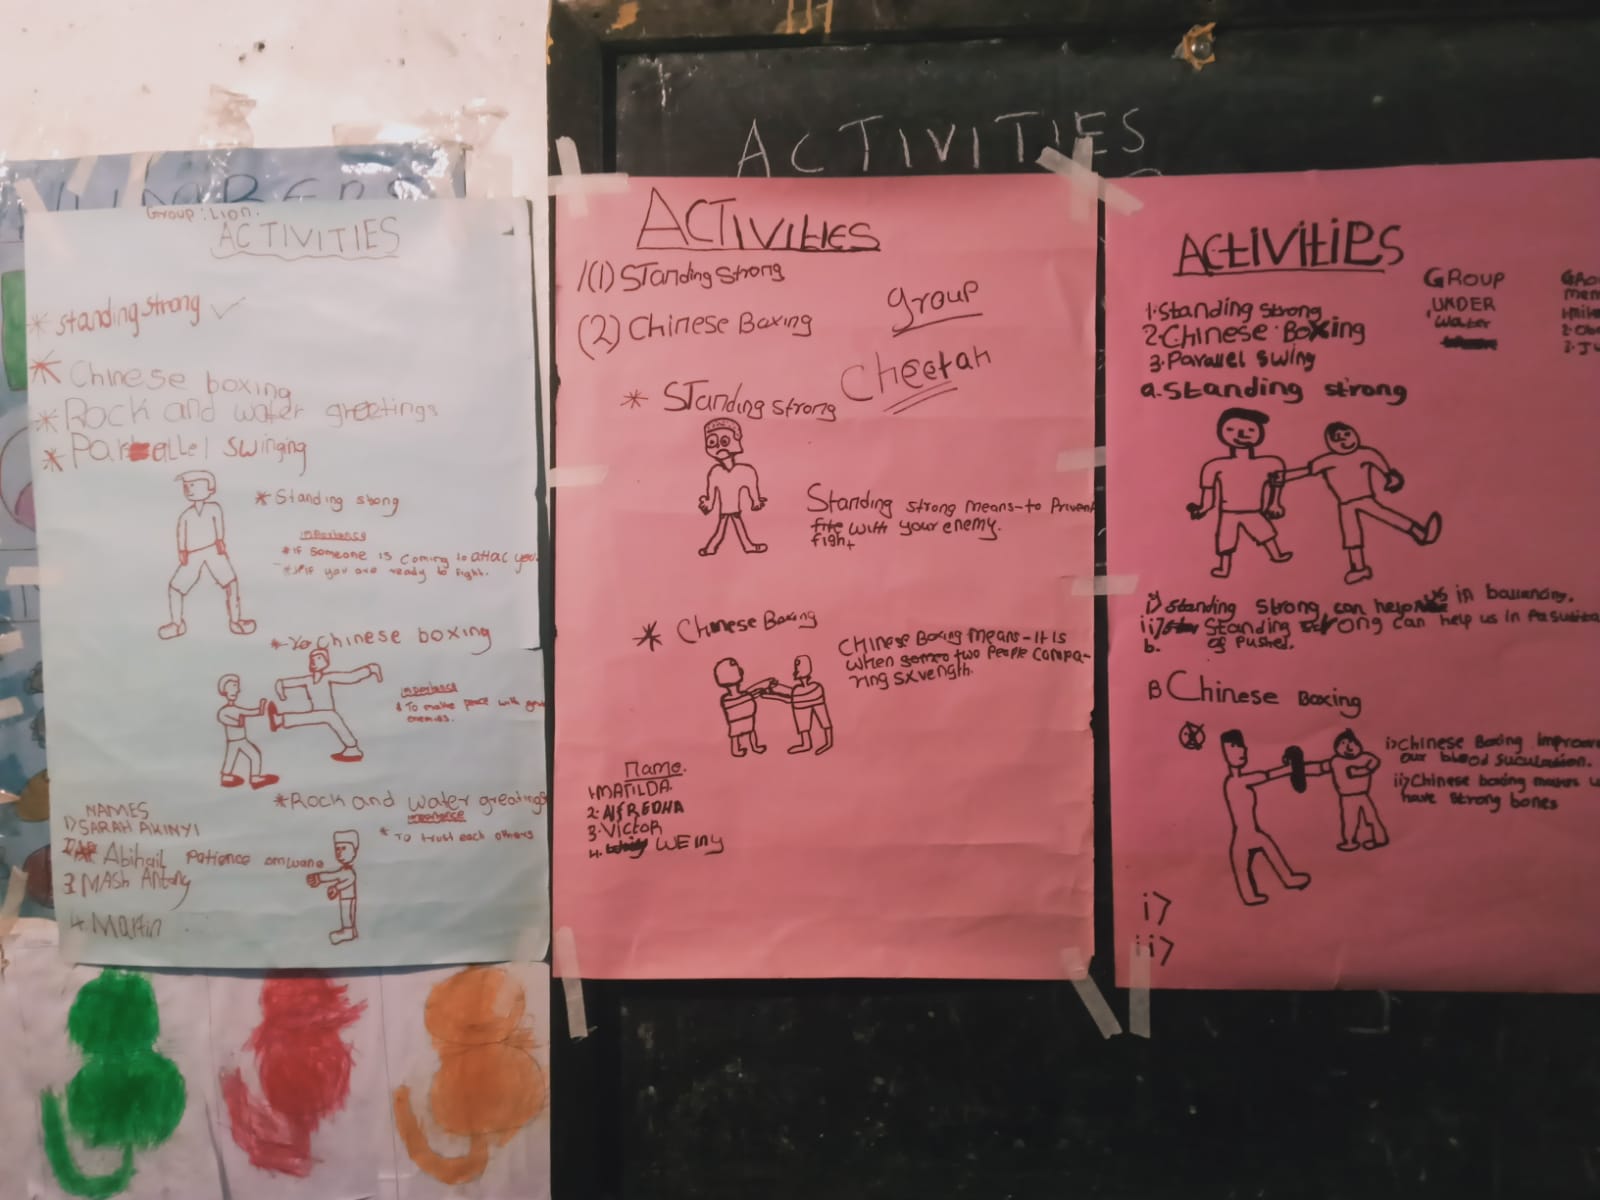 ACTIVITIES
NUMBERS
Group: Lion.
ACTIVITIES
* Standing strong ✓
* Chinese boxing
* Rock and water greetings
* Parallel swinging
* Standing stong
importance
* if someone is coming to attac you.
* if you are ready to fight.
* Chinese boxing
importance
* To make peace with
enemies.
* Rock and water greatings
importance
* To trust each others
NAMES
1) SARAH AKINYI
Abihail Patience omwano
3. MASH Antony
4. Martin
ACTIVITIES
1(1) Standing Strong
(2) Chinese Boxing
group
Cheetah
* Standing strong
Standing strong means-to Prevent
with your enemy.
fight
* Chinese Boxing
Chinese Boxing means-It is
when two People compa-
ring
Name.
1.MATILDA.
2. AlFREDHA
3. Victor
4. WEINY
ACTIVITIES
1.Standing Strong
2.Chinese Boxing
3.Parallel Swing
GROUP
UNDER
Water
a.Standing strong
i) Standing Strong can help us in ballancing.
ii) Standing strong can help us in
b. of Pushed.
B Chinese Boxing
i) Chinese Boxing
our blood suculation.
ii) Chinese boxing makes
have strong bones
i)
ii)